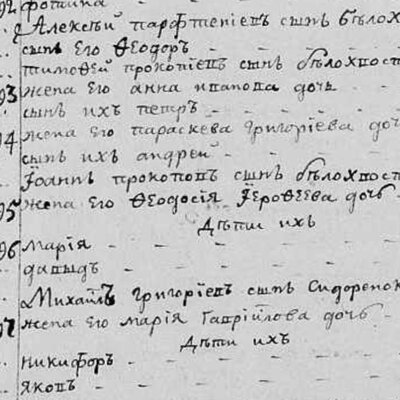 92 фотина
Алексѣй парфтениевъ сынъ бѣлохв
сынъ Его Ѳеодоръ
тимоѳей прокопїевъ сынъ бѣлохвост
93 жена Его анна иванова дочь
сынъ ихъ петръ
94 жена Его параскева григорїева доч
сынъ ихъ андреи
Їоаннъ прокоповъ сынъ бѣлохвост
95 жена Его Ѳеодосїя Їероѳеева дочь
Дѣти ихъ
96 марїя
давыдъ
Михаилъ григорїевъ сынъ Сидоренок
97 жена Его марїя Гаврїилова дочь
Дѣти ихъ
никифоръ
яковъ